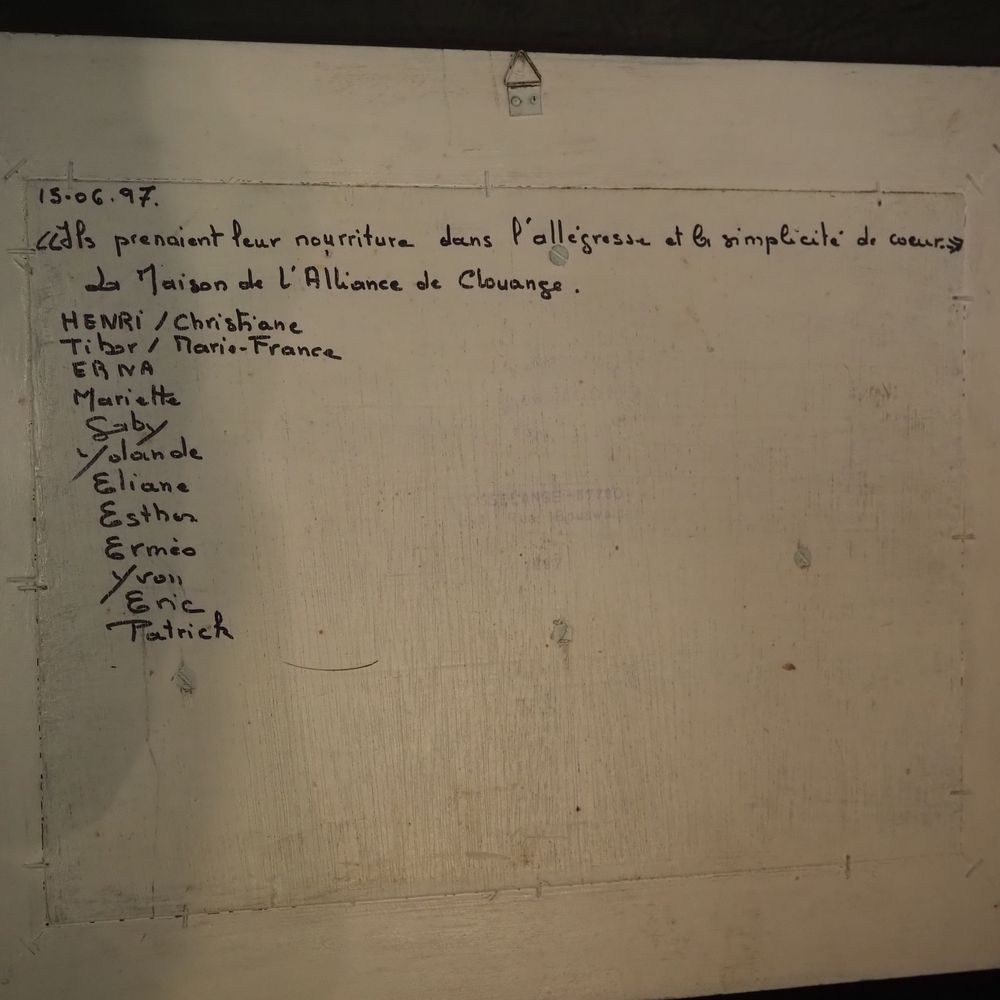 15.06.97.
«Ils prenaient leur nourriture dans l'allégresse et la simplicité de coeur.»
La Maison de l'Alliance de Clouange.
HENRi / Christiane
Tibor / Marie-France
ERNA
Mariette
Gaby
Yolande
Eliane
Esther
Erméo
Yvon
Eric
Patrick